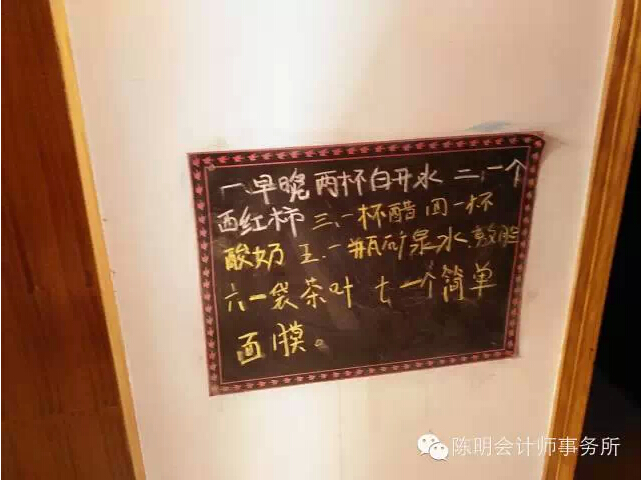 一.早晚两杯白开水 二.一个
西红柿 三.一杯醋 四一杯
酸奶 五.一瓶矿泉水.敷脸
六一袋茶叶 七一个简单
面膜。
陈明会计师事务所